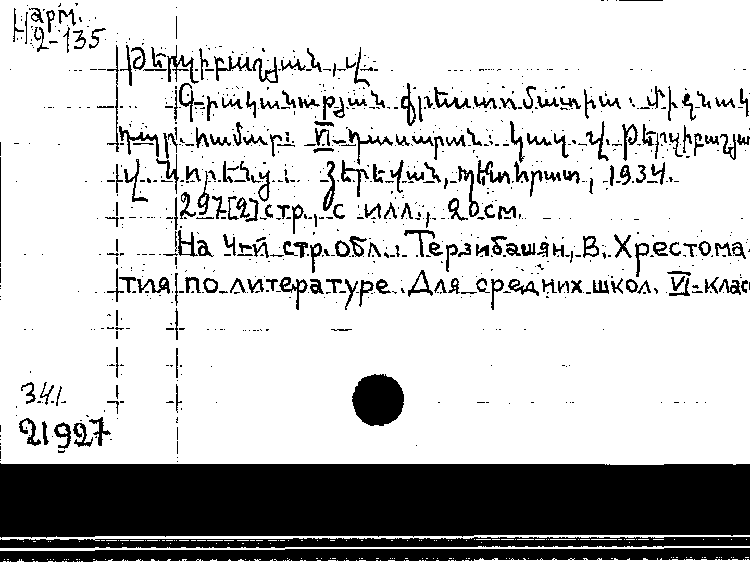 Нарм.
2-135
Թերզիբաշյան, վ.
Գրականության քրեստոմատիա: Միջնակ
դպր. համար: VI-դասարան: Կազ. վ. Թերզիբաշյա
վ. Նորենց: Յերեվան, պետհրատ, 1934.
297[2] стр., с илл., 20см.
На 4-й стр. обл.: Терзибашян, В. Хрестома-
тия по литературе. Для средних школ. VI-клас
341.
21927